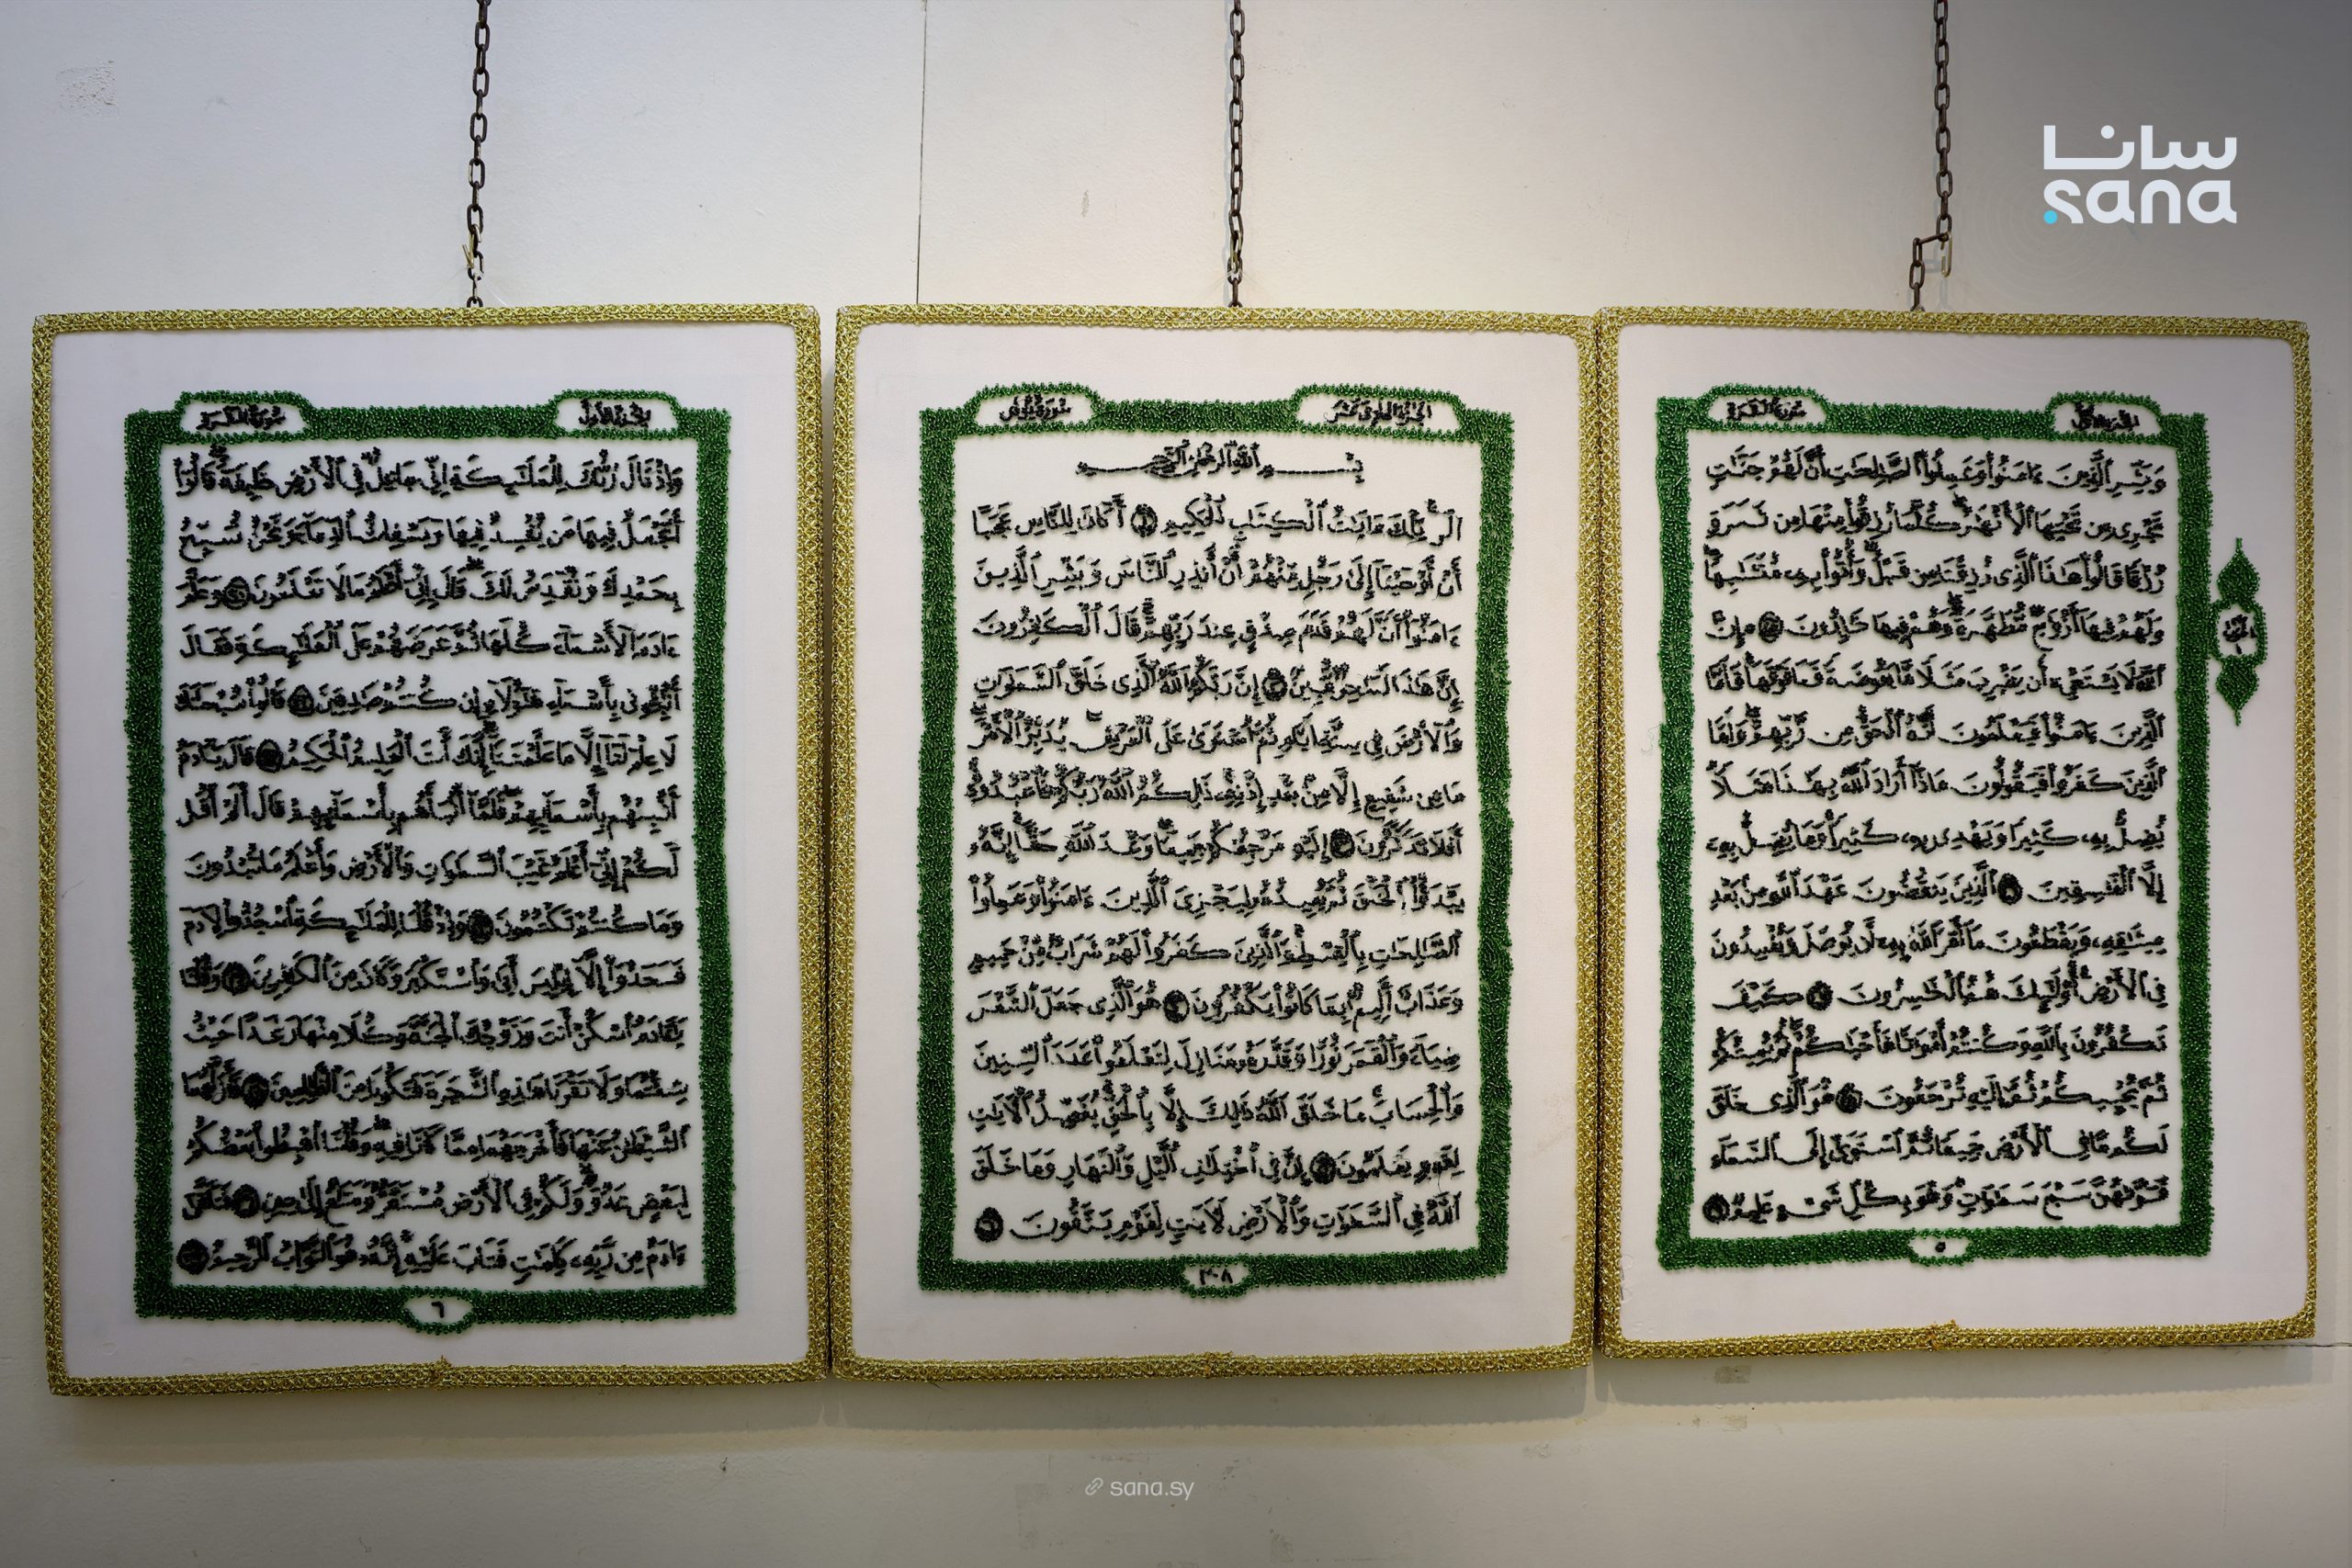 سانا
sana
الجزء الأول
سورة البقرة
وَبَشِّرِ ٱلَّذِينَ ءَامَنُوا۟ وَعَمِلُوا۟ ٱلصَّٰلِحَٰتِ أَنَّ لَهُمْ جَنَّٰتٍ
تَجْرِى مِن تَحْتِهَا ٱلْأَنْهَٰرُ ۖ كُلَّمَا رُزِقُوا۟ مِنْهَا مِن ثَمَرَةٍ
رِّزْقًا قَالُوا۟ هَٰذَا ٱلَّذِى رُزِقْنَا مِن قَبْلُ ۖ وَأُتُوا۟ بِهِۦ مُتَشَٰبِهًا ۖ
وَلَهُمْ فِيهَآ أَزْوَٰجٌ مُّطَهَّرَةٌ ۖ وَهُمْ فِيهَا خَٰلِدُونَ ٢٥ ۞ إِنَّ
ٱللَّهَ لَا يَسْتَحْىِۦٓ أَن يَضْرِبَ مَثَلًا مَّا بَعُوضَةً فَمَا فَوْقَهَا ۚ فَأَمَّا
ٱلَّذِينَ ءَامَنُوا۟ فَيَعْلَمُونَ أَنَّهُ ٱلْحَقُّ مِن رَّبِّهِمْ ۖ وَأَمَّا
ٱلَّذِينَ كَفَرُوا۟ فَيَقُولُونَ مَاذَآ أَرَادَ ٱللَّهُ بِهَٰذَا مَثَلًا ۘ
يُضِلُّ بِهِۦ كَثِيرًا وَيَهْدِى بِهِۦ كَثِيرًا ۚ وَمَا يُضِلُّ بِهِۦٓ
إِلَّا ٱلْفَٰسِقِينَ ٢٦ ٱلَّذِينَ يَنقُضُونَ عَهْدَ ٱللَّهِ مِنۢ بَعْدِ
مِيثَٰقِهِۦ وَيَقْطَعُونَ مَآ أَمَرَ ٱللَّهُ بِهِۦٓ أَن يُوصَلَ وَيُفْسِدُونَ
فِى ٱلْأَرْضِ ۚ أُو۟لَٰٓئِكَ هُمُ ٱلْخَٰسِرُونَ ٢٧ كَيْفَ
تَكْفُرُونَ بِٱللَّهِ وَكُنتُمْ أَمْوَٰتًا فَأَحْيَٰكُمْ ۖ ثُمَّ يُمِيتُكُمْ
ثُمَّ يُحْيِيكُمْ ثُمَّ إِلَيْهِ تُرْجَعُونَ ٢٨ هُوَ ٱلَّذِى خَلَقَ
لَكُم مَّا فِى ٱلْأَرْضِ جَمِيعًا ثُمَّ ٱسْتَوَىٰٓ إِلَى ٱلسَّمَآءِ
فَسَوَّىٰهُنَّ سَبْعَ سَمَٰوَٰتٍ ۚ وَهُوَ بِكُلِّ شَىْءٍ عَلِيمٌ ٢٩
٥
الجزء الحادي عشر
سورة يونس
بِسْمِ ٱللَّهِ ٱلرَّحْمَٰنِ ٱلرَّحِيمِ
الٓر ۚ تِلْكَ ءَايَٰتُ ٱلْكِتَٰبِ ٱلْحَكِيمِ ١ أَكَانَ لِلنَّاسِ عَجَبًا
أَنْ أَوْحَيْنَآ إِلَىٰ رَجُلٍ مِّنْهُمْ أَنْ أَنذِرِ ٱلنَّاسَ وَبَشِّرِ ٱلَّذِينَ
ءَامَنُوٓا۟ أَنَّ لَهُمْ قَدَمَ صِدْقٍ عِندَ رَبِّهِمْ ۗ قَالَ ٱلْكَٰفِرُونَ
إِنَّ هَٰذَا لَسَٰحِرٌ مُّبِينٌ ٢ إِنَّ رَبَّكُمُ ٱللَّهُ ٱلَّذِى خَلَقَ ٱلسَّمَٰوَٰتِ
وَٱلْأَرْضَ فِى سِتَّةِ أَيَّامٍ ثُمَّ ٱسْتَوَىٰ عَلَى ٱلْعَرْشِ ۖ يُدَبِّرُ ٱلْأَمْرَ ۖ
مَا مِن شَفِيعٍ إِلَّا مِنۢ بَعْدِ إِذْنِهِۦ ۚ ذَٰلِكُمُ ٱللَّهُ رَبُّكُمْ فَٱعْبُدُوهُ ۚ
أَفَلَا تَذَكَّرُونَ ٣ إِلَيْهِ مَرْجِعُكُمْ جَمِيعًا ۖ وَعْدَ ٱللَّهِ حَقًّا ۚ إِنَّهُۥ
يَبْدَؤُا۟ ٱلْخَلْقَ ثُمَّ يُعِيدُهُۥ لِيَجْزِىَ ٱلَّذِينَ ءَامَنُوا۟ وَعَمِلُوا۟
ٱلصَّٰلِحَٰتِ بِٱلْقِسْطِ ۚ وَٱلَّذِينَ كَفَرُوا۟ لَهُمْ شَرَابٌ مِّنْ حَمِيمٍ
وَعَذَابٌ أَلِيمٌۢ بِمَا كَانُوا۟ يَكْفُرُونَ ٤ هُوَ ٱلَّذِى جَعَلَ ٱلشَّمْسَ
ضِيَآءً وَٱلْقَمَرَ نُورًا وَقَدَّرَهُۥ مَنَازِلَ لِتَعْلَمُوا۟ عَدَدَ ٱلسِّنِينَ
وَٱلْحِسَابَ ۚ مَا خَلَقَ ٱللَّهُ ذَٰلِكَ إِلَّا بِٱلْحَقِّ ۚ يُفَصِّلُ ٱلْءَايَٰتِ
لِقَوْمٍ يَعْلَمُونَ ٥ إِنَّ فِى ٱخْتِلَٰفِ ٱلَّيْلِ وَٱلنَّهَارِ وَمَا خَلَقَ
ٱللَّهُ فِى ٱلسَّمَٰوَٰتِ وَٱلْأَرْضِ لَءَايَٰتٍ لِّقَوْمٍ يَتَّقُونَ ٦
٢٠٨
الجزء الأول
سورة البقرة
وَإِذْ قَالَ رَبُّكَ لِلْمَلَٰٓئِكَةِ إِنِّى جَاعِلٌ فِى ٱلْأَرْضِ خَلِيفَةً ۖ قَالُوٓا۟
أَتَجْعَلُ فِيهَا مَن يُفْسِدُ فِيهَا وَيَسْفِكُ ٱلدِّمَآءَ وَنَحْنُ نُسَبِّحُ
بِحَمْدِكَ وَنُقَدِّسُ لَكَ ۖ قَالَ إِنِّىٓ أَعْلَمُ مَا لَا تَعْلَمُونَ ٣٠ وَعَلَّمَ
ءَادَمَ ٱلْأَسْمَآءَ كُلَّهَا ثُمَّ عَرَضَهُمْ عَلَى ٱلْمَلَٰٓئِكَةِ فَقَالَ
أَنۢبِـُٔونِى بِأَسْمَآءِ هَٰٓؤُلَآءِ إِن كُنتُمْ صَٰدِقِينَ ٣١ قَالُوا۟ سُبْحَٰنَكَ
لَا عِلْمَ لَنَآ إِلَّا مَا عَلَّمْتَنَآ ۖ إِنَّكَ أَنتَ ٱلْعَلِيمُ ٱلْحَكِيمُ ٣٢ قَالَ يَٰٓـَٔادَمُ
أَنۢبِئْهُم بِأَسْمَآئِهِمْ ۖ فَلَمَّآ أَنۢبَأَهُم بِأَسْمَآئِهِمْ قَالَ أَلَمْ أَقُل
لَّكُمْ إِنِّىٓ أَعْلَمُ غَيْبَ ٱلسَّمَٰوَٰتِ وَٱلْأَرْضِ وَأَعْلَمُ مَا تُبْدُونَ
وَمَا كُنتُمْ تَكْتُمُونَ ٣٣ وَإِذْ قُلْنَا لِلْمَلَٰٓئِكَةِ ٱسْجُدُوا۟ لِءَادَمَ
فَسَجَدُوٓا۟ إِلَّآ إِبْلِيسَ أَبَىٰ وَٱسْتَكْبَرَ وَكَانَ مِنَ ٱلْكَٰفِرِينَ ٣٤ وَقُلْنَا
يَٰٓـَٔادَمُ ٱسْكُنْ أَنتَ وَزَوْجُكَ ٱلْجَنَّةَ وَكُلَا مِنْهَا رَغَدًا حَيْثُ
شِئْتُمَا وَلَا تَقْرَبَا هَٰذِهِ ٱلشَّجَرَةَ فَتَكُونَا مِنَ ٱلظَّٰلِمِينَ ٣٥ فَأَزَلَّهُمَا
ٱلشَّيْطَٰنُ عَنْهَا فَأَخْرَجَهُمَا مِمَّا كَانَا فِيهِ ۖ وَقُلْنَا ٱهْبِطُوا۟ بَعْضُكُمْ
لِبَعْضٍ عَدُوٌّ ۖ وَلَكُمْ فِى ٱلْأَرْضِ مُسْتَقَرٌّ وَمَتَٰعٌ إِلَىٰ حِينٍ ٣٦ فَتَلَقَّىٰٓ
ءَادَمُ مِن رَّبِّهِۦ كَلِمَٰتٍ فَتَابَ عَلَيْهِ ۚ إِنَّهُۥ هُوَ ٱلتَّوَّابُ ٱلرَّحِيمُ ٣٧
٦
sana.sy